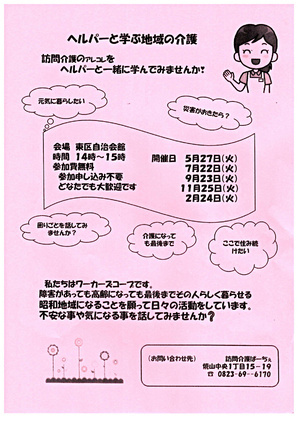 ヘルパーと学ぶ地域の介護
訪問介護のアレコレを
ヘルパーと一緒に学んでみませんか?
元気に暮らしたい
災害がおきたら?
会場 東区自治会館
時間 14時〜15時
参加費無料
参加申し込み不要
どなたでも大歓迎です
開催日 5月27日(火)
7月22日(火)
9月23日(火)
11月25日(火)
2月24日(火)
困りごとを話してみ
ませんか?
介護になって
も最後まで
ここで住み続
けたい
私たちはワーカーズコープです。
障害があっても高齢になっても最後までその人らしく暮らせる
昭和地域になることを願って日々の活動をしています。
不安な事や気になる事を話してみませんか?
(お問い合わせ先)
訪問介護ぽーちぇ
焼山中央1丁目15-19
☎ 0823-69-6170